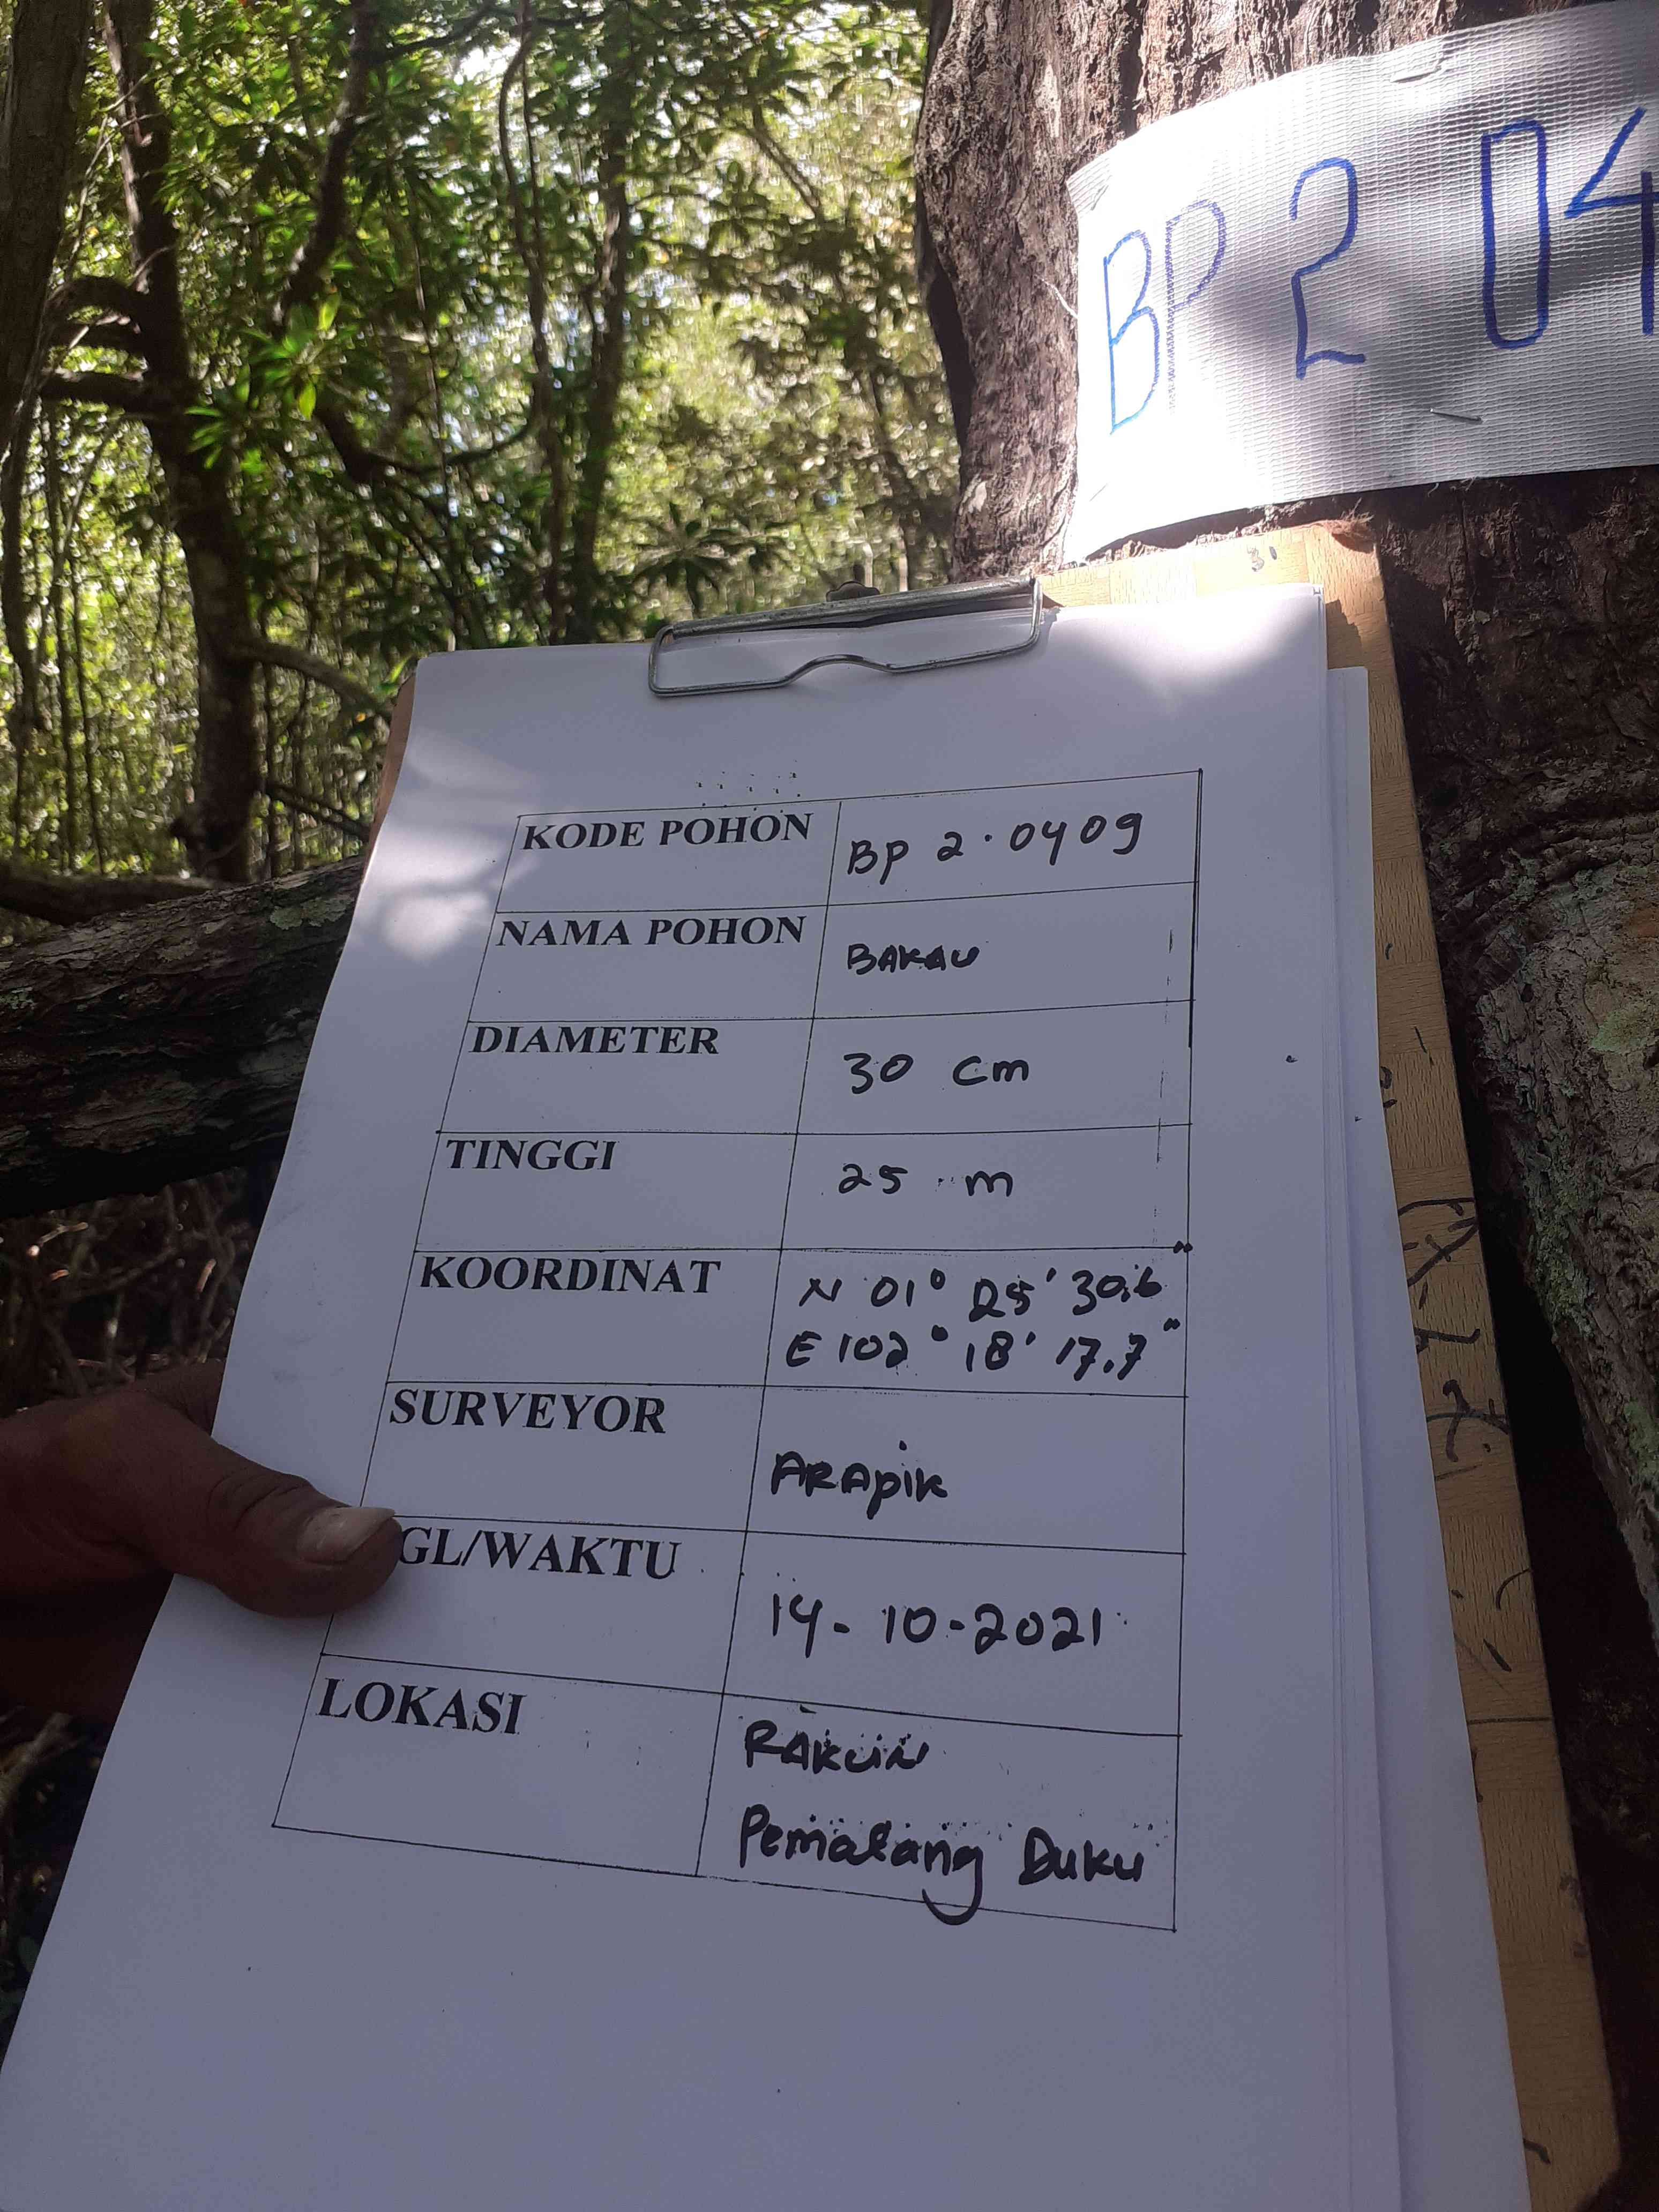 BP 2 04
KODE POHON BP 2.0409
NAMA POHON BAKAU
DIAMETER 30 cm
TINGGI 25 m
KOORDINAT N 01° 25' 30,6"
E 102° 18' 17.7"
SURVEYOR ARApik
GL/WAKTU 14-10-2021
LOKASI RAKUIN
Pematang Duku